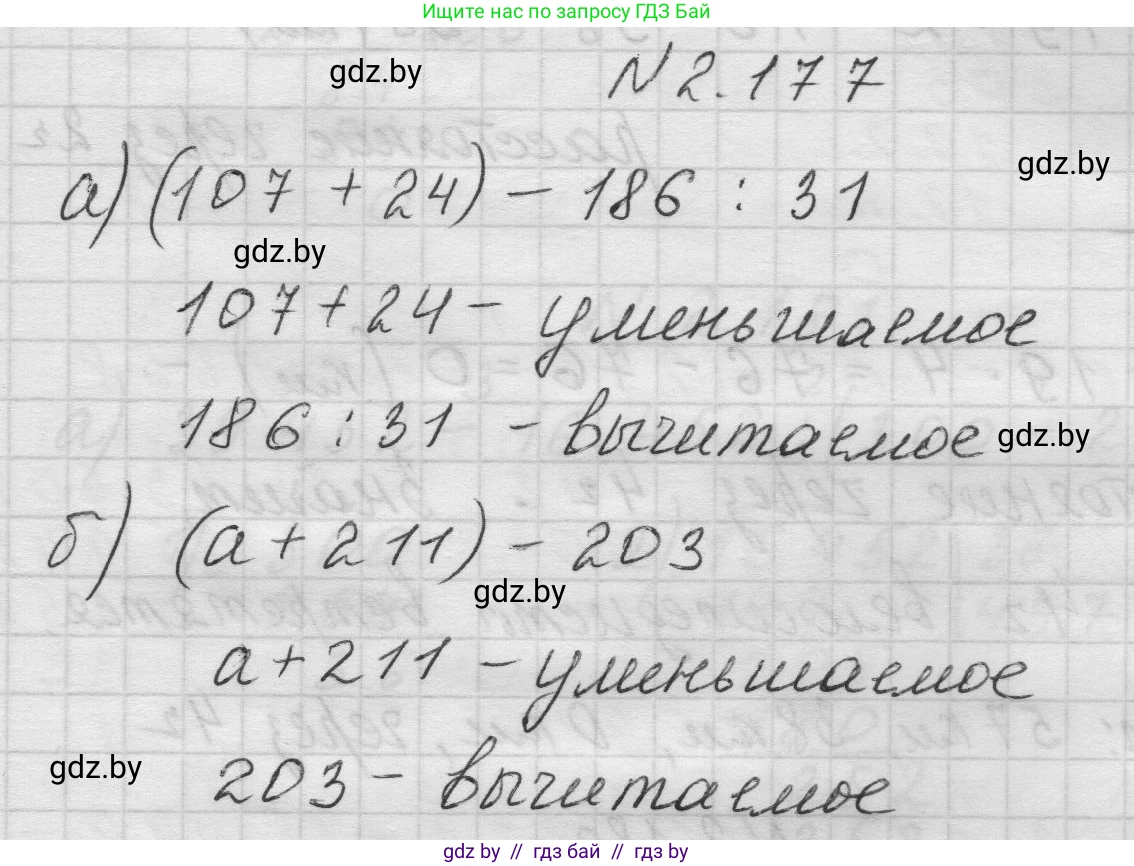 Ищите нас по запросу ГДЗ Бай
gdz.by
N 2.177
gdz.by
а) (107 + 24) - 186 : 31
gdz.by
107 + 24 - уменьшаемое
186 : 31 - вычитаемое
gdz.by
б) (а + 211) - 203
gdz.by
а + 211 - уменьшаемое
gdz.by
203 - вычитаемое
gdz by // гдз бай // гдз by